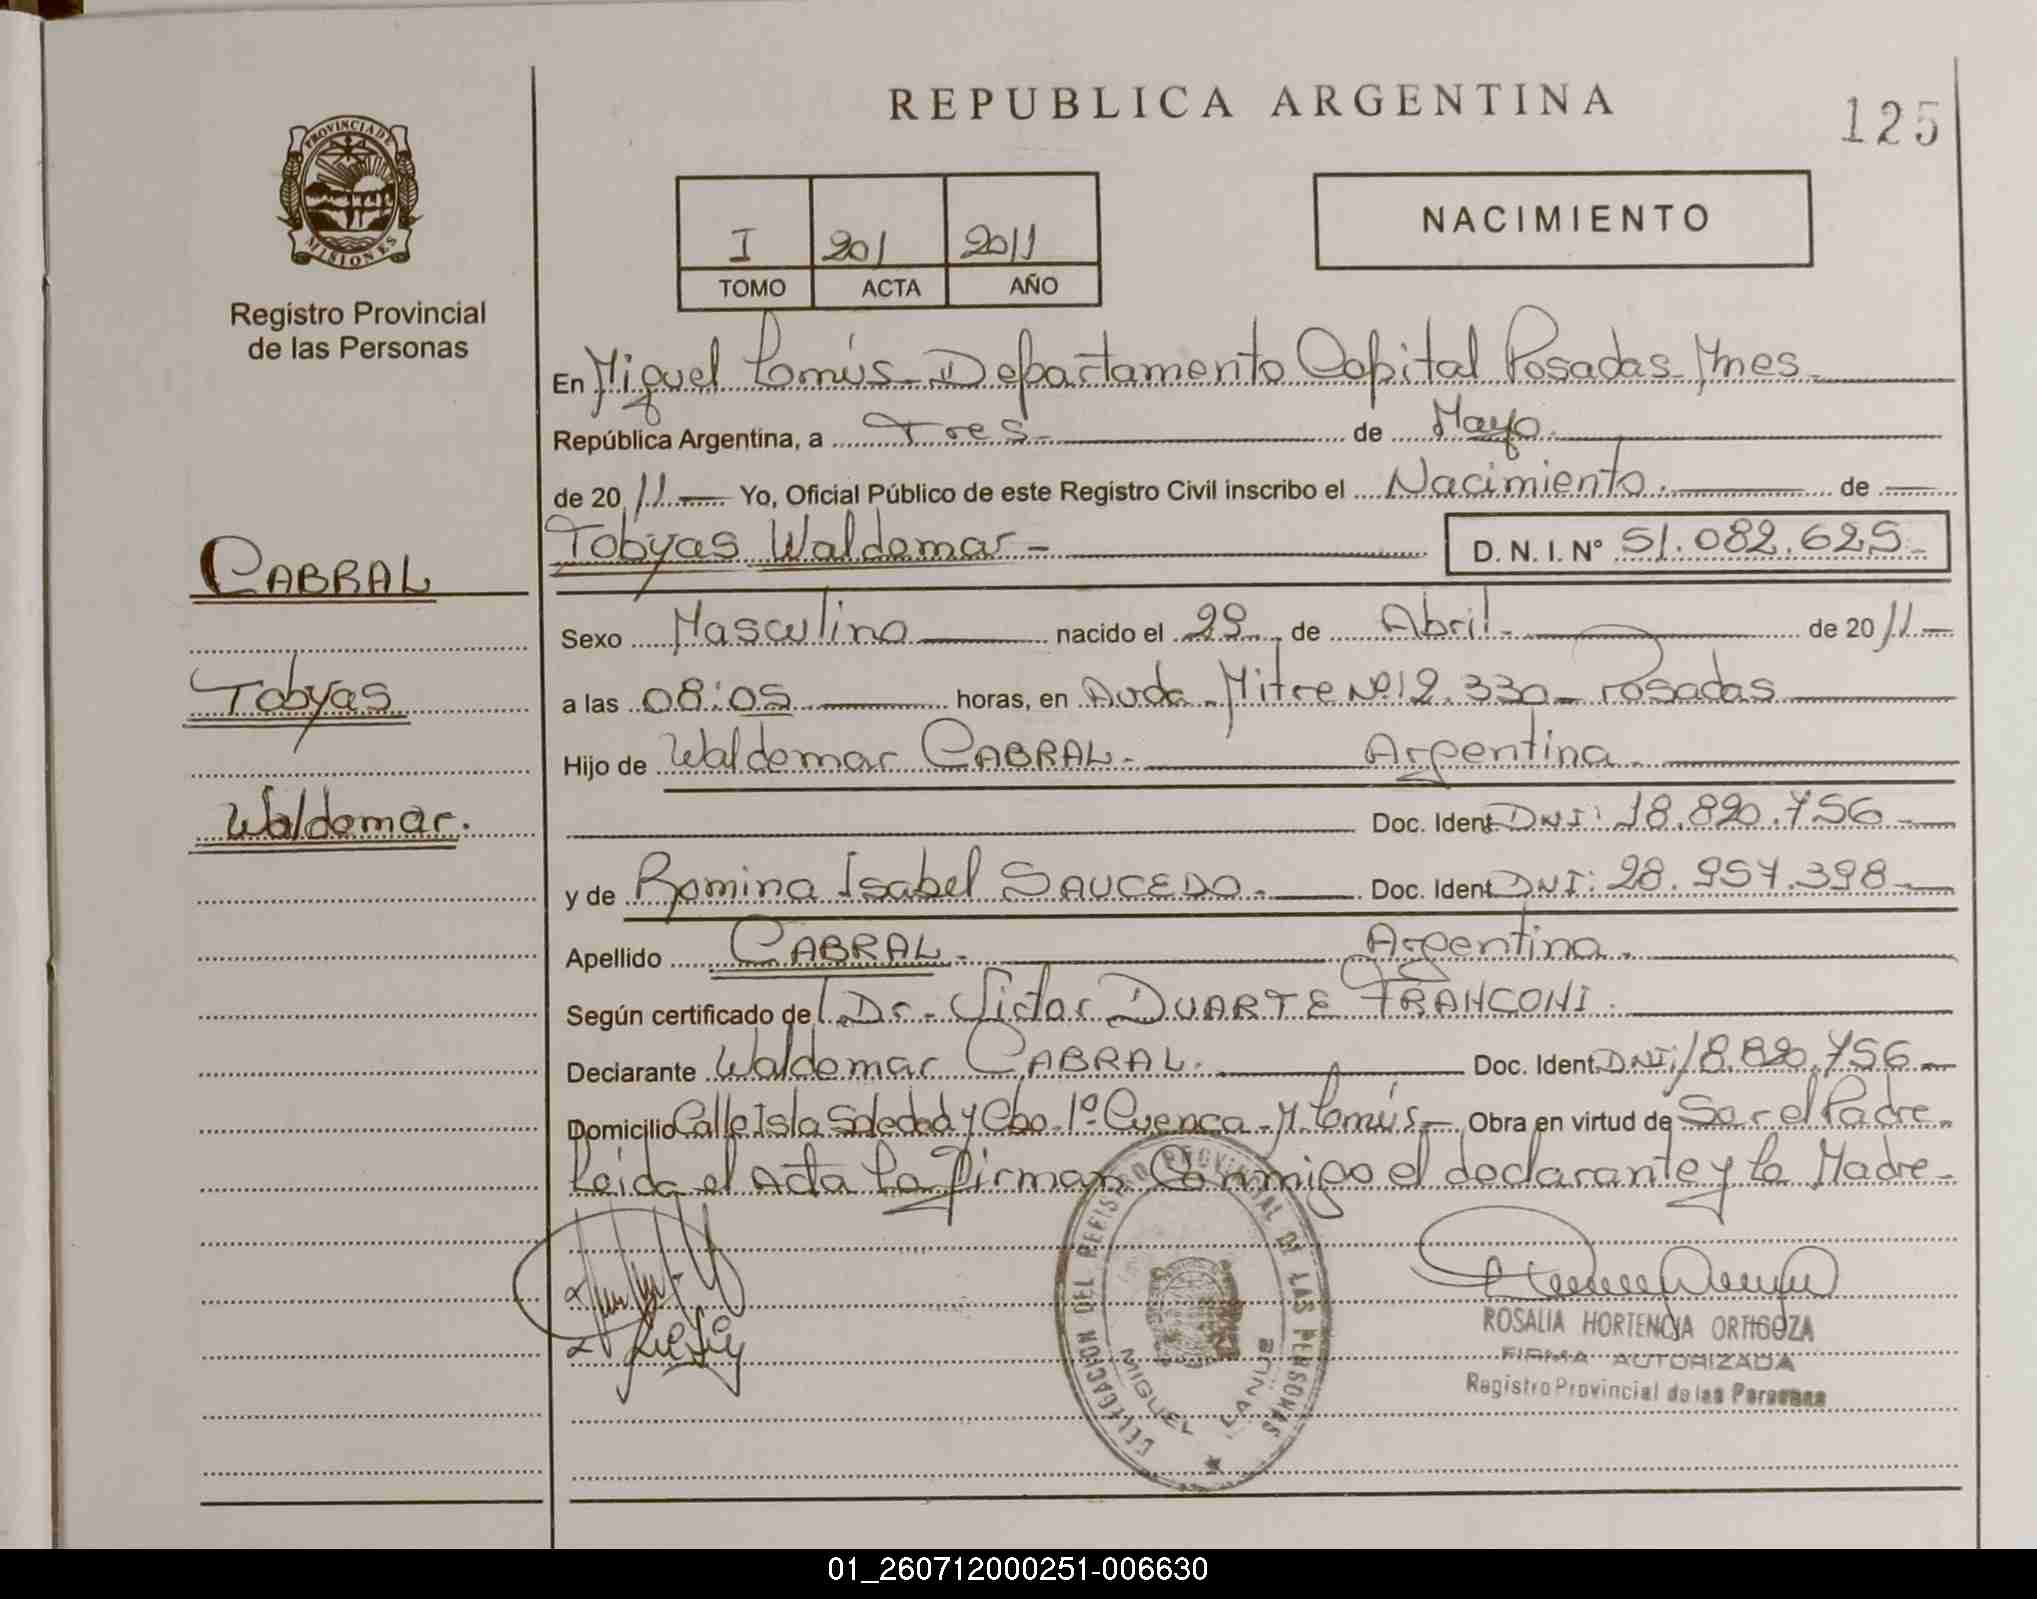 REPUBLICA ARGENTINA
125
PROVINCIA DE
MISIONES
Registro Provincial
de las Personas
I 201 2011
TOMO ACTA AÑO
NACIMIENTO
En Miguel Lanús - Departamento Capital Posadas Mnes
República Argentina, a Tres de Mayo
de 2011 Yo, Oficial Público de este Registro Civil inscribo el Nacimiento de
Tobyas Waldemar - D. N. I. N° 51.082.625
CABRAL
Tobyas
Waldemar.
Sexo Masculino nacido el 29 de Abril de 2011
a las 08:05 horas, en Avda. Mitre Nº 12.330 - Posadas
Hijo de Waldemar CABRAL. Argentina
Doc. Ident. DNI: 18.820.756
y de Romina Isabel SAUCEDO. Doc. Ident. DNI: 28.957.398
Apellido CABRAL. Argentina.
Según certificado de Dr. Victor DUARTE FRANCONI.
Declarante Waldemar CABRAL. Doc. Ident. DNI: 18.820.756
Domicilio Calle Isla Soledad y Cbo. 1º Cuenca - M. Lanús - Obra en virtud de Ser el Padre.
Leida el Acta La Firman Conmigo el declarante y la Madre
DELEGACION DEL REGISTRO PROVINCIAL DE LAS PERSONAS
MIGUEL LANUS
ROSALIA HORTENCIA ORTIGOZA
FIRMA AUTORIZADA
Registro Provincial de las Personas
01_260712000251-006630